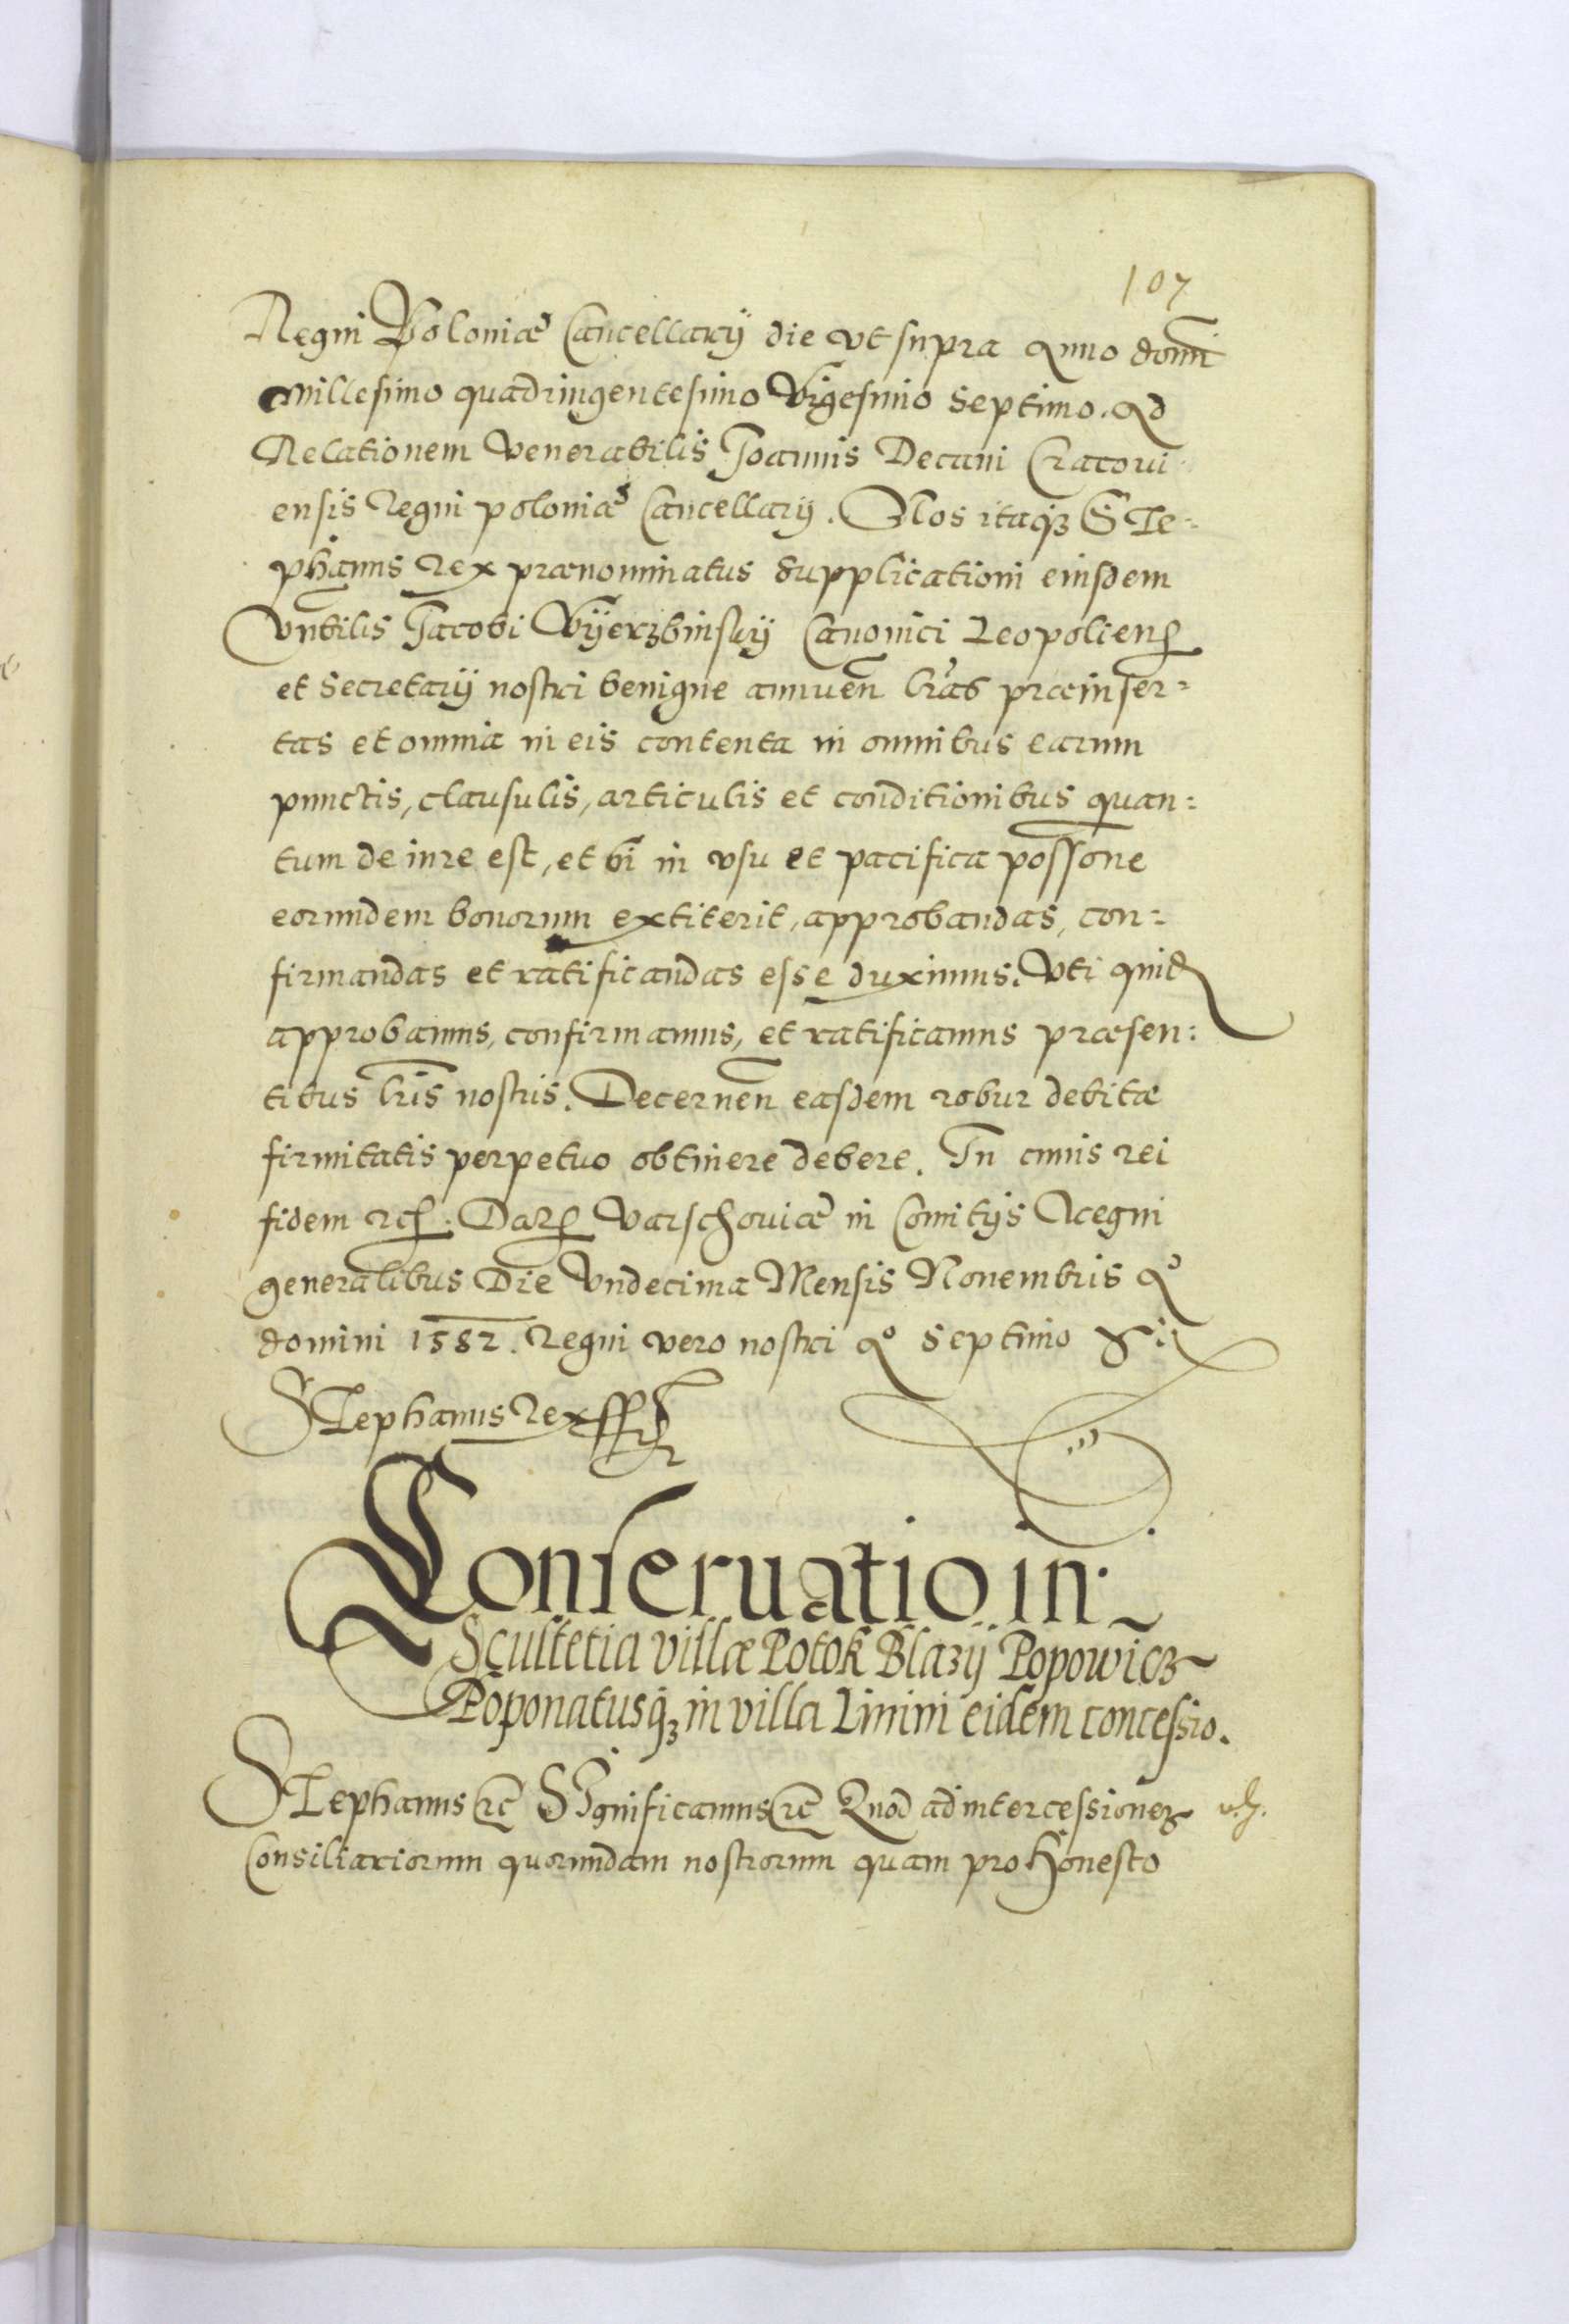 107
Regni Poloniæ Cancellarij die vt supra Anno domi
Millesimo quadringentesimo Vigesimo Septimo. Ad
Relationem venerabilis Joannis Decani Cracoui
ensis Regni poloniæ Cancellarij. Nos itaq3 Ste=
phanus Rex prænominatus supplicationi eiusdem
Vnbilis Jacobi Wyerzbinskij Canonici Leopolien
et Secretarij nostri benigne annuen lras præinser=
tas et omnia in eis contenta in omnibus earum
punctis, clausulis, articulis et conditionibus quan=
tum de iure est, et vi in vsu et pacifica possone
eorundem bonorum extiterit, approbandas, con=
firmandas et ratificandas esse duximus. Vti quid
approbamus, confirmamus, et ratificamus præsen=
tibus lris nostris. Decernen easdem robur debitæ
firmitatis perpetuo obtinere debere. In cuius rei
fidem rc. Dat Varschouiæ in Comitijs Regni
generalibus Die Vndecima Mensis Nouembris Ao
domini 1582. Regni vero nostri Ao Septimo
Stephanus Rex
Conseruatio in
Scultetia villæ Potok Blazij Popowicz
Poponatusq3 in villa Linini eidem concessio.
Stephanus rc Significamus rc Quod ad intercessionem
Consiliariorum quorundam nostrorum quam pro Honesto